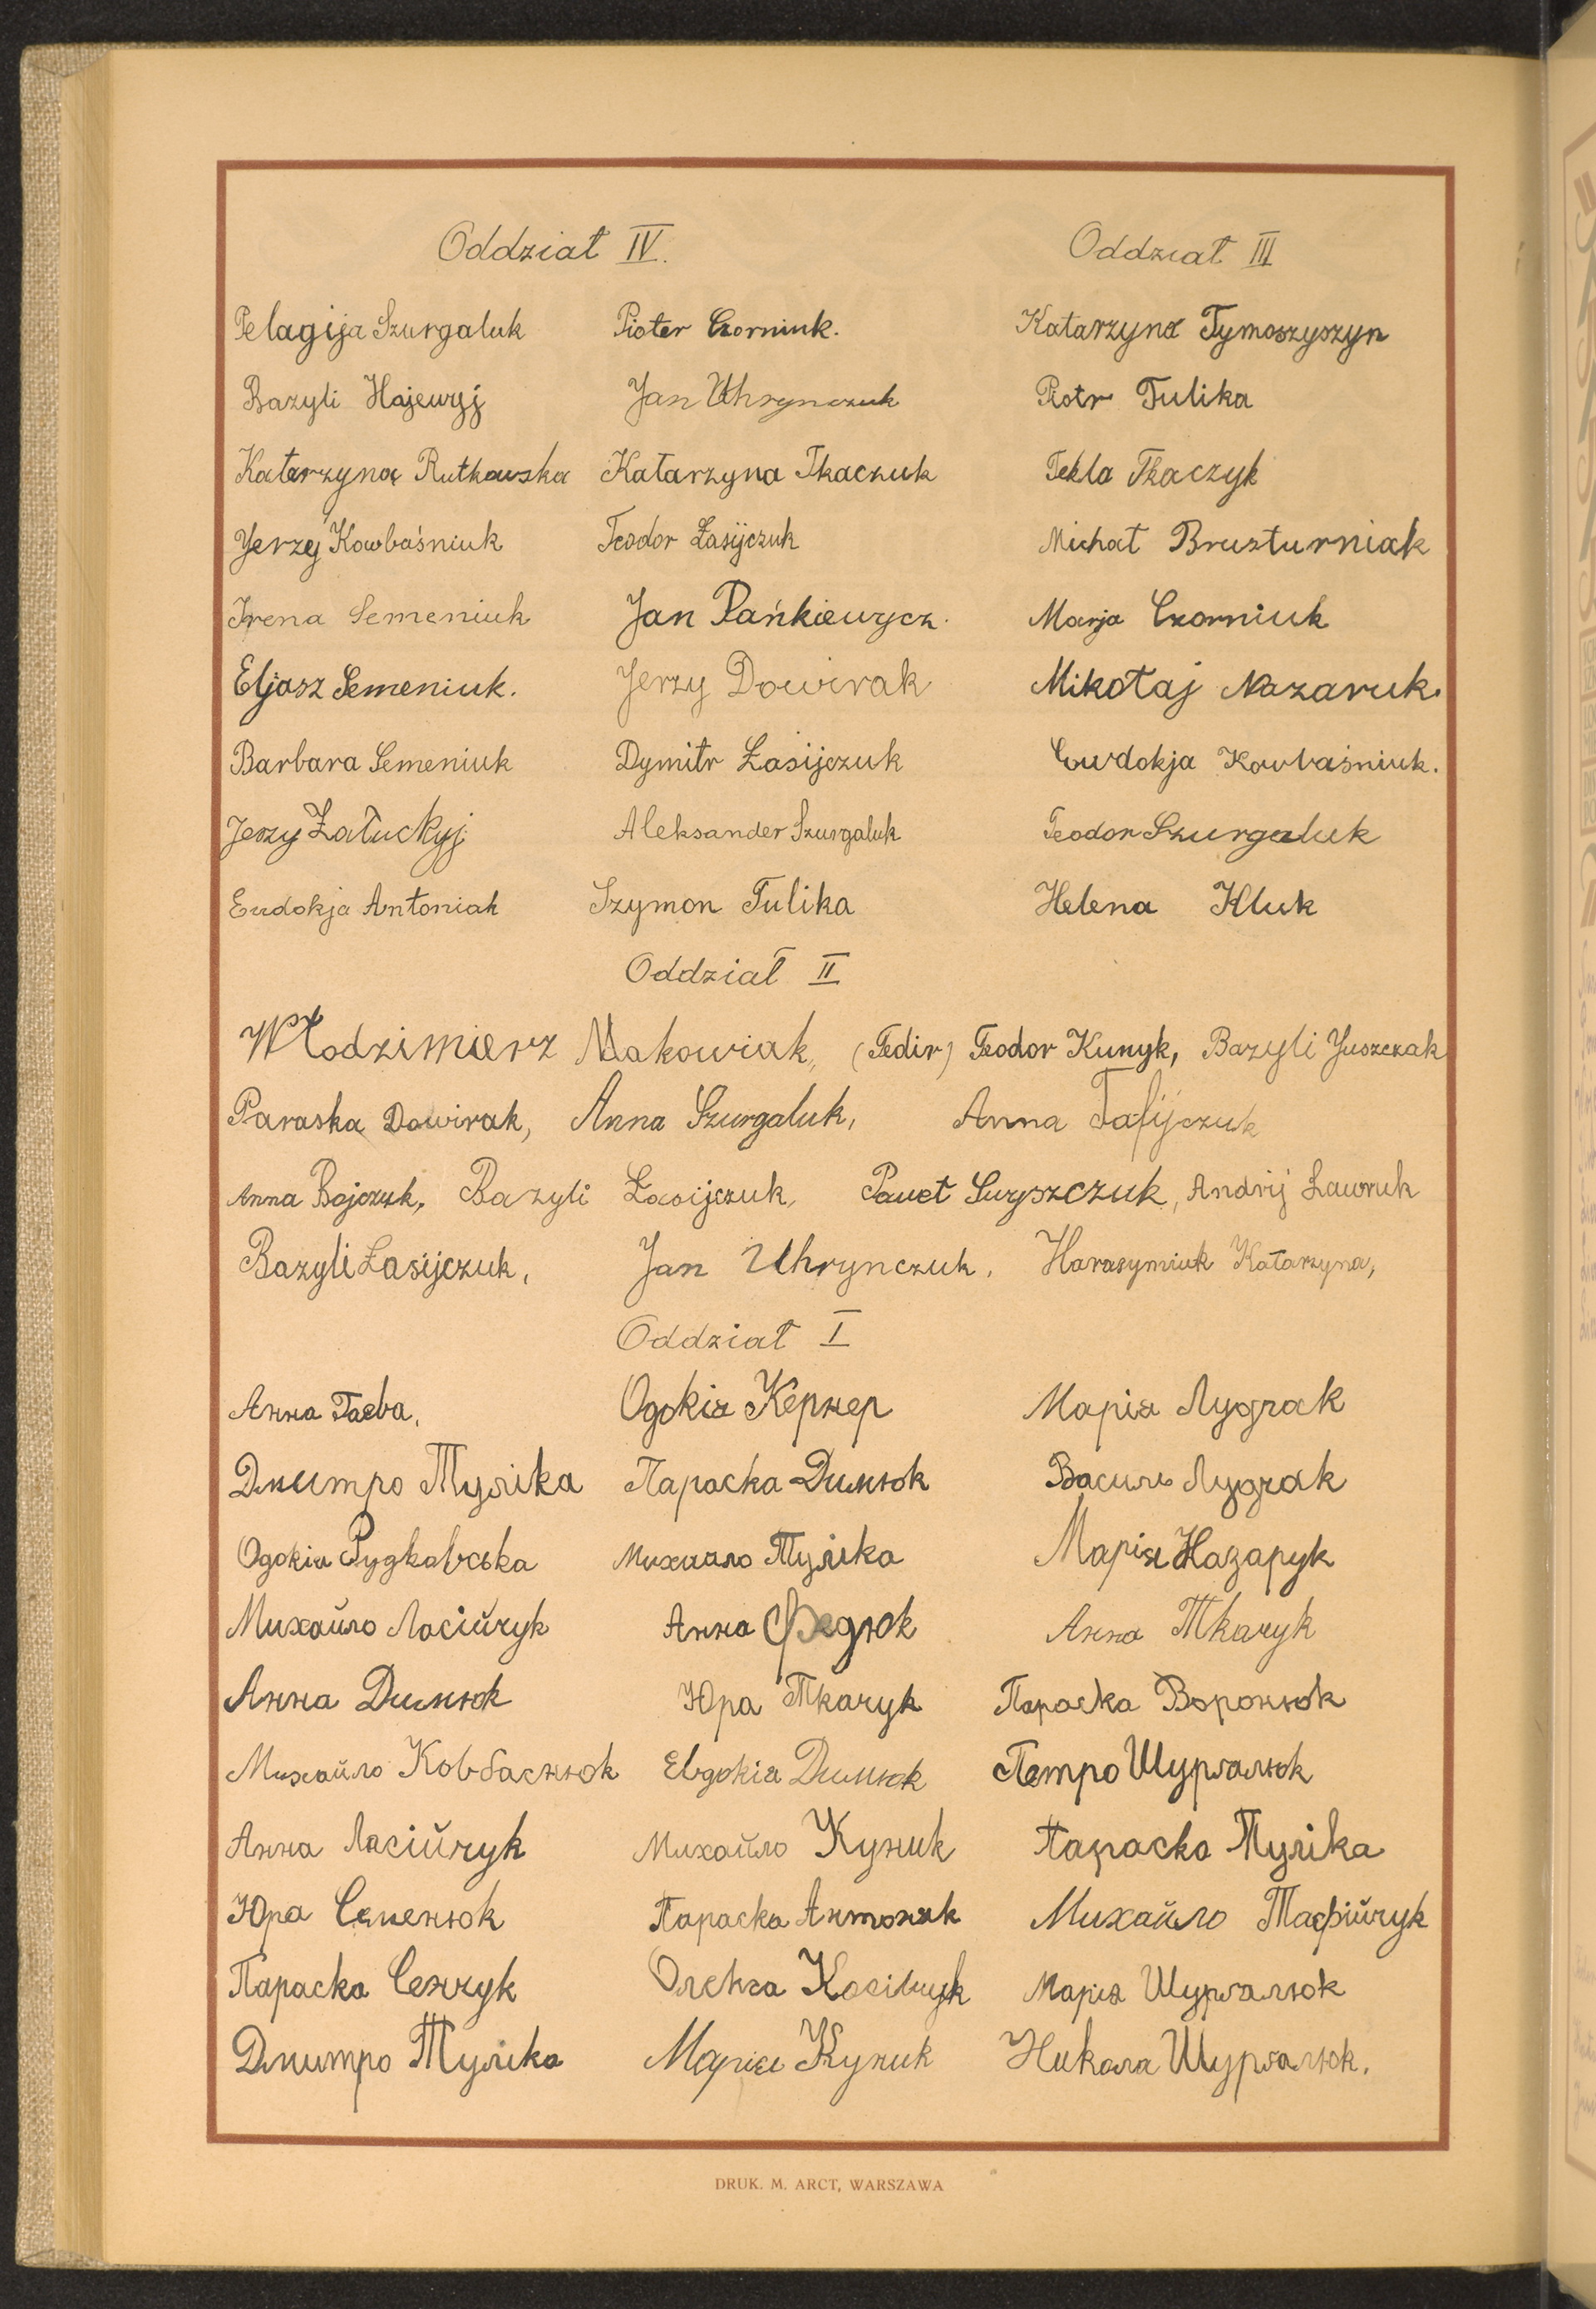 Oddział IV. Oddział III
Pelagija Szurgaluk Pioter Czorniuk. Katarzyna Tymoszyszyn
Bazyli Hajewyj Jan Uhrynczuk Piotr Tulika
Katarzyna Rutkowska Katarzyna Tkaczuk Tekla Tkaczyk
Jerzy Kowbaśniuk Teodor Łasijczuk Michał Bruszturniak
Irena Semeniuk Jan Pańkiewycz. Marja Czorniuk
Eljasz Semeniuk. Jerzy Dowirak Mikołaj Nazaruk.
Barbara Semeniuk Dymitr Łasijczuk Ewdokja Kowbaśniuk.
Jerzy Załuckyj Aleksander Szurgaluk Teodor Szurgaluk
Eudokja Antoniak Szymon Tulika Helena Kluk
Oddział II
Włodzimierz Makowiak, (Fedir) Teodor Kunyk, Bazyli Juszczak
Paraska Dowirak, Anna Szurgaluk, Anna Tafijczuk
Anna Bojczuk, Bazyli Łasijczuk, Paweł Suryszczuk, Andrij Ławruk
Bazyli Łasijczuk, Jan Uhrynczuk, Harasymiuk Katarzyna,
Oddział I
Анна Гаєва, Одокія Кернер Марія Лудчак
Дмитро Туліка Параска Димнюк Василь Лудчак
Одокія Рудкавська Михайло Туліка Марія Назарук
Михайло Ласійчук Анна Федюк Анна Ткачук
Анна Димнюк Юра Ткачук Параска Воронюк
Михайло Ковбаснюк Евдокія Димнюк Петро Шурґалюк
Анна Ласійчук Михайло Куник Параска Туліка
Юра Семенюк Параска Антоняк Михайло Тафійчук
Параска Сенчук Олекса Косівчук Марія Шурґалюк
Дмитро Туліка Марія Куник Никола Шурґалюк.
DRUK. M. ARCT, WARSZAWA